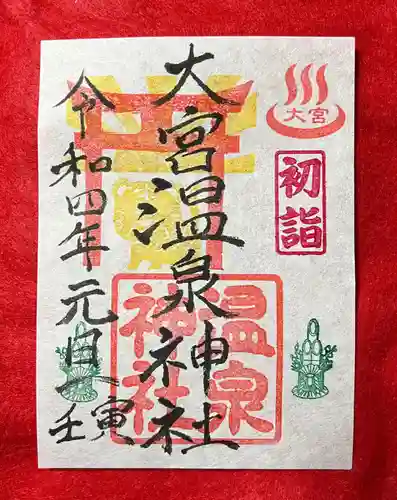 大宮
初詣
大宮温泉神社
温泉
神社
令和四年元旦
壬寅